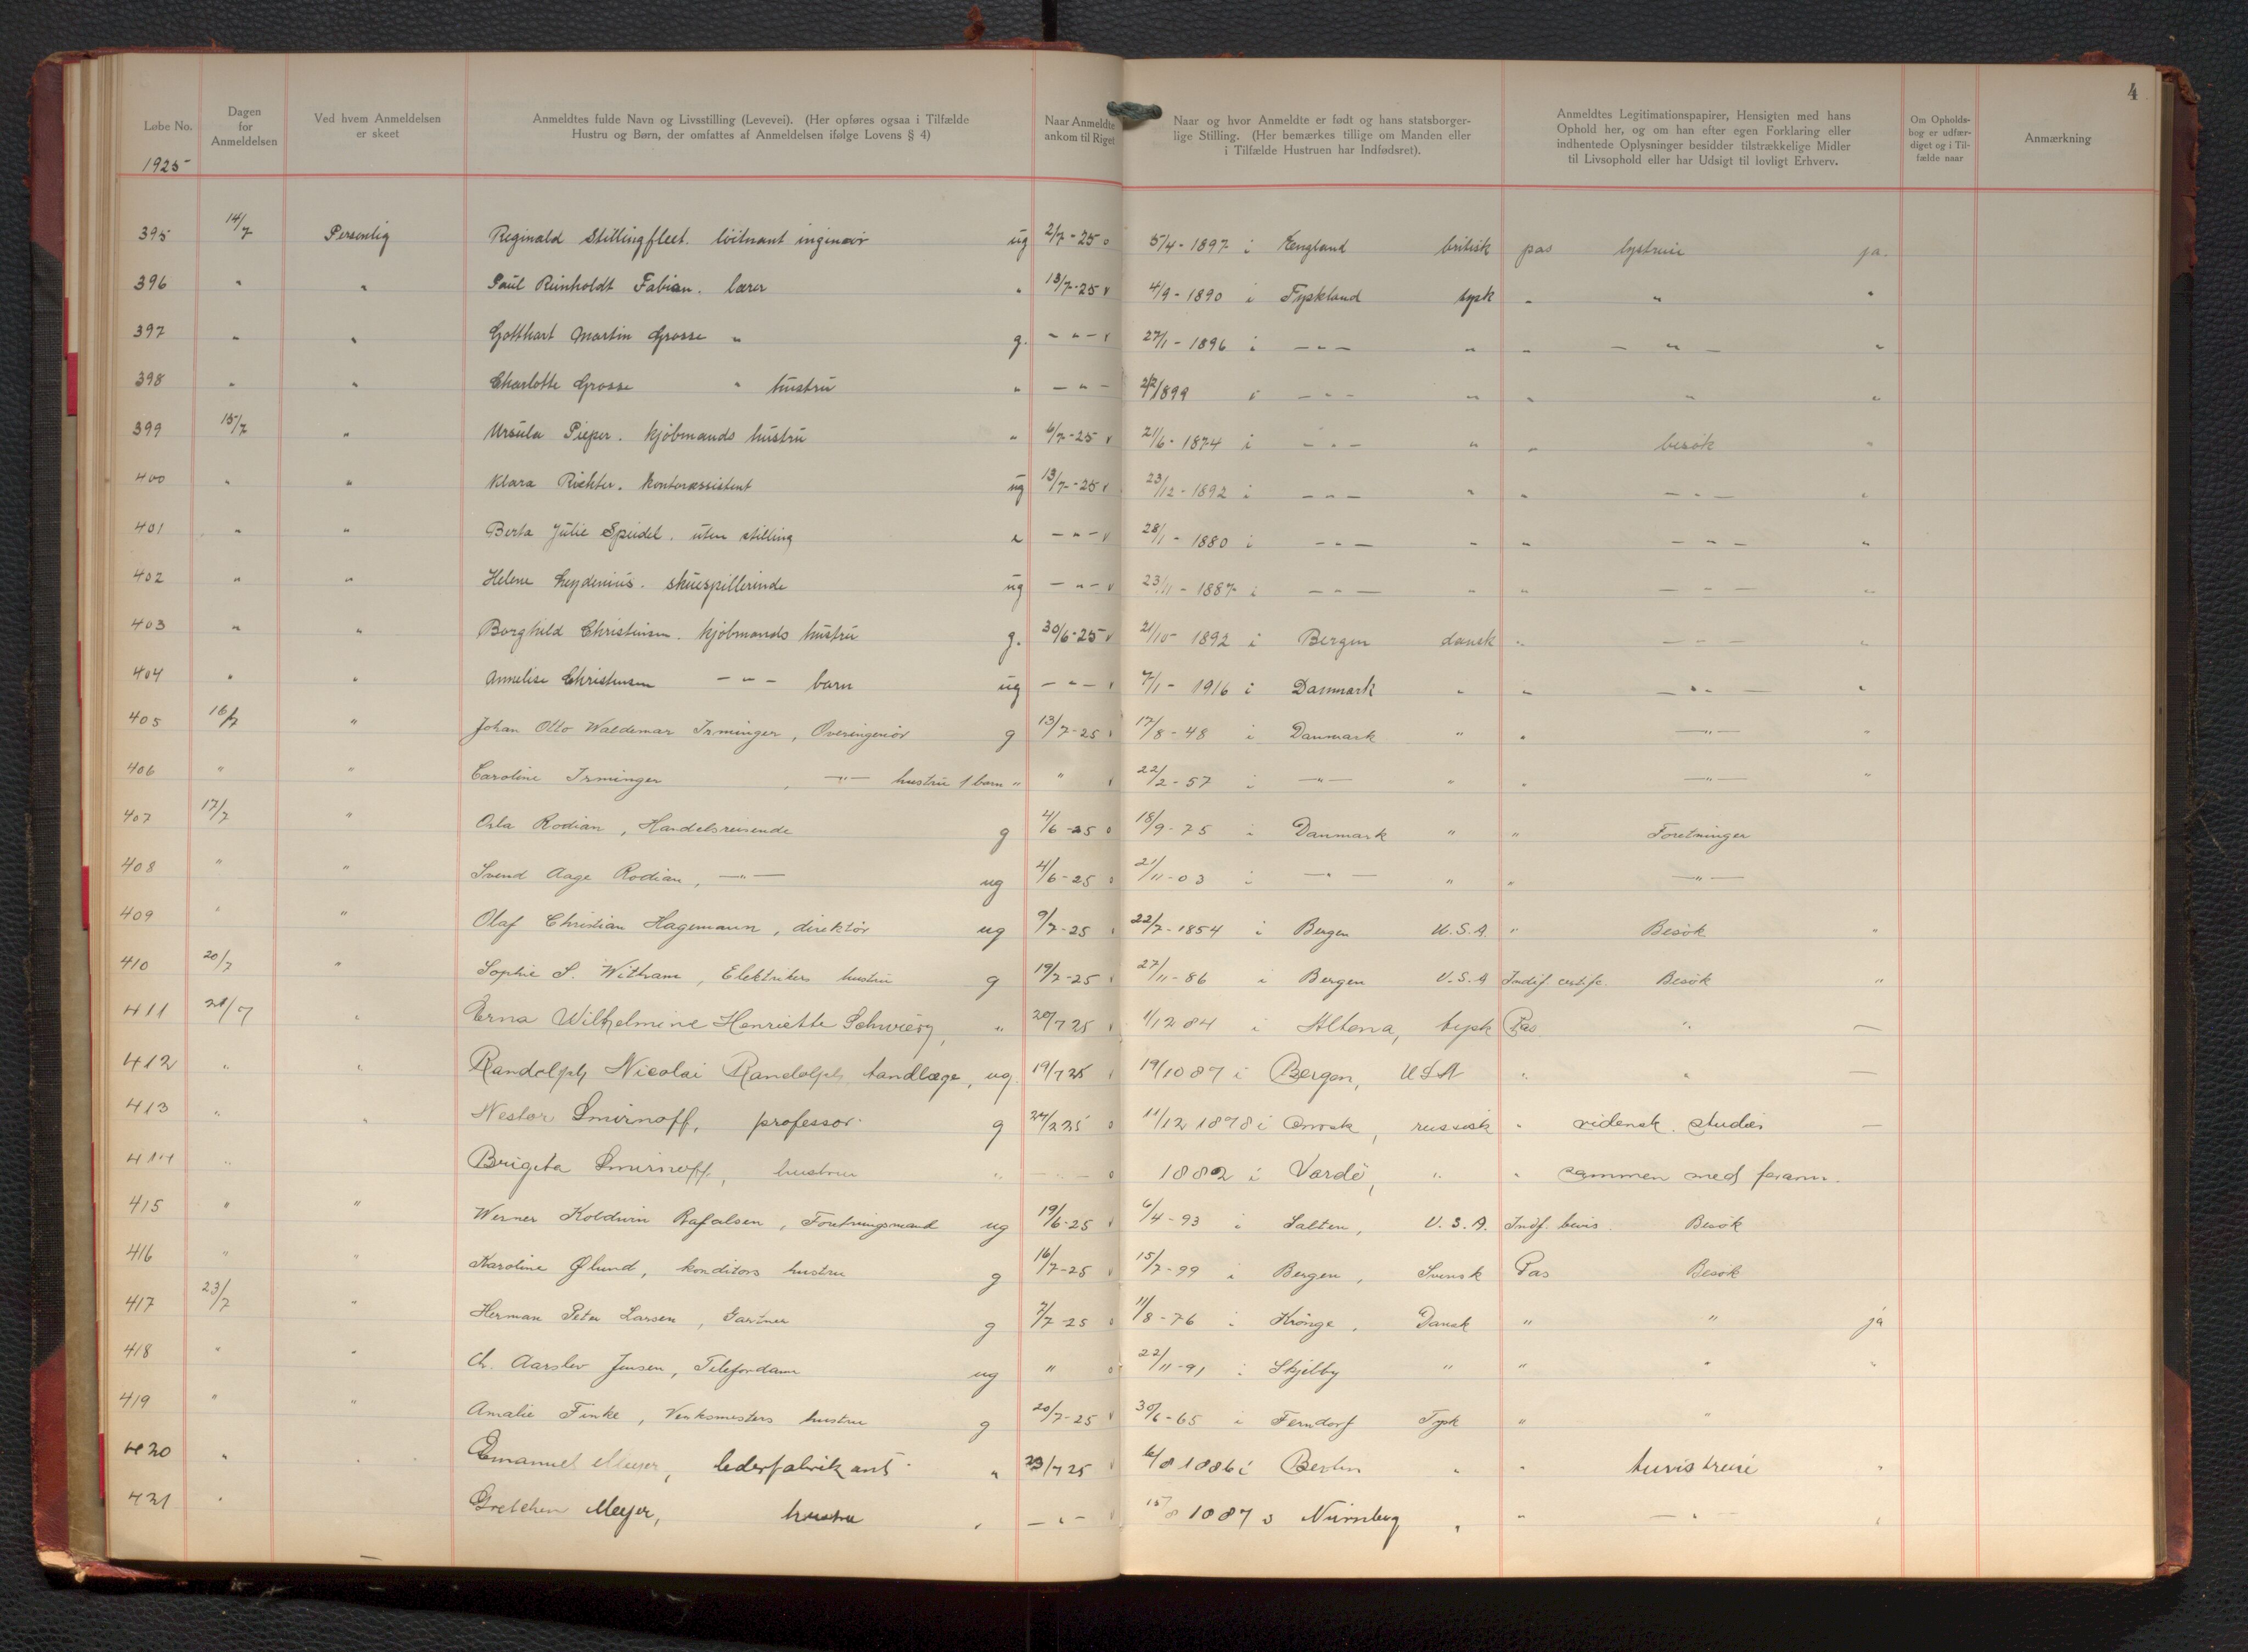 4
Løbe No.
Dagen for Anmeldelsen
Ved hvem Anmeldelsen er skeet
Anmeldtes fulde Navn og Livsstilling (Levevei). (Her opføres ogsaa i Tilfælde Hustru og Børn, der omfattes af Anmeldelsen ifølge Lovens § 4)
Naar Anmeldte ankom til Riget
Naar og hvor Anmeldte er født og hans statsborgerlige Stilling. (Her bemærkes tillige om Manden eller i Tilfælde Hustruen har Indfødsret).
Anmeldtes Legitimationspapirer, Hensigten med hans Ophold her, og om han efter egen Forklaring eller indhentede Oplysninger besidder tilstrækkelige Midler til Livsophold eller har Udsigt til lovligt Erhverv.
Om Opholdsbog er udfærdiget og i Tilfælde naar
Anmærkning
1925
395 14/7 Personlig Reginald Stillingfleet. löitnant ingeniör ug 2/7-25 o 5/4-1897 i England britisk pas lystreise ja.
396 " " Paul Reinholdt Fabian. lærer " 13/7-25 v 4/9-1890 i Tyskland tysk " " "
397 " " Gotthart Martin Grosse " g. - " - v 27/1-1896 i - " - " " - " - "
398 " " Charlotte Grosse " hustru " - " - 2/2 1899 i - " - " " " "
399 15/7 " Ursula Pieper. kjöbmands hustru " 6/7-25 v 21/6-1874 i - " - " " besök "
400 " " Klara Richter. kontorassistent ug 13/7-25 v 23/12-1892 i - " - " " - " - "
401 " " Berta Julie Speidel. uten stilling " - " - v 28/1-1880 i - " - " " - " - "
402 " " Helene Leydenius. skuespillerinde ug - " - v 23/11-1887 i - " - " " - " - "
403 " " Borghild Christensen. kjöbmands hustru g. 30/6-25 v 21/10-1892 i Bergen dansk " - " - "
404 " " Annelise Christensen - " - barn ug - " - v 7/1-1916 i Danmark " " - " - "
405 16/7 " Johan Otto Waldemar Irminger, Overingeniör g 13/7-25 v 17/8-48 i Danmark " " - " - "
406 " " Caroline Irminger, - " - hustru 1 barn " " v 22/2-57 i - " - " " - " - "
407 17/7 " Orla Rodian, Handelsreisende g 4/6-25 o 18/9-75 i Danmark " " Foretninger
408 " " Svend Aage Rodian, - " - ug 4/6-25 o 21/11-03 i - " - " " - " -
409 " " Olaf Christian Hagemann, direktör ug 9/7-25 v 22/7-1854 i Bergen U.S.A. " Besök "
410 20/7 " Sophie S. Witham, Elektrikers hustru g 19/7-25 v 27/11-86 i Bergen U.S.A Indif certifc. Besök "
411 21/7 " Erna Wilhelmine Henriette Schwierg, " 20/7 25 v 1/12 84 i Altena, tysk Pas " -
412 " " Randolph Nicolai Randolph tandlæge, ug. 19/7 25 v 19/10 87 i Bergen, USA " " -
413 " " Nestor Smirnoff, professor g o 11/12 1878 i Omsk, russisk " vidensk. studier -
414 " Brigita Smirnoff, hustru " - " - o 1882 i Vardö, " " sammen med foran.
415 " " Werner Koldwin Rafalsen, Foretningsmand ug 19/6-25 v 6/4-93 i Salten, U.S.A. Indf. bevis. Besök
416 " " Karoline Ølund, konditors hustru g 16/7-25 v 15/7-99 i Bergen, Svensk Pas Besök
417 23/7 " Herman Peter Larsen, Gartner g 7/7-25 o 11/8-76 i Krönge, Dansk " " ja
418 " " Ch. Aarslev Jensen, Telefondame ug " o 22/11-91 i Skjelby " " " "
419 " " Amalie Finke, Verksmesters hustru g 20/7-25 v 30/6-65 i Ferndorf Tysk " "
420 " " Emanuel Meyer, lederfabrikant " 23/7 25 v 6/8 1886 i Berlin " " turistreise "
421 " Gretchen Meyer, hustru " - " - v 15/8 1887 i Nürnberg " " - " - "